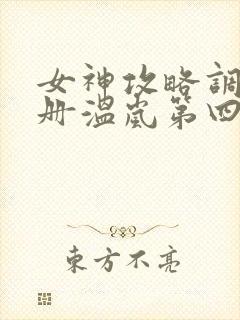 女神攻略調
册温嵐第四
東方不亮